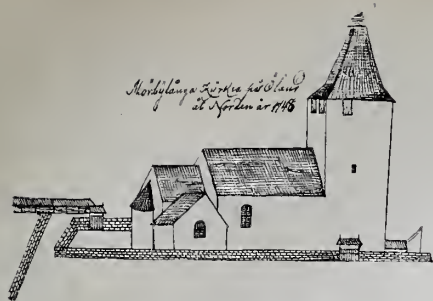 Mörbylånga Kÿrkia på Öland
åt Norden år 1748